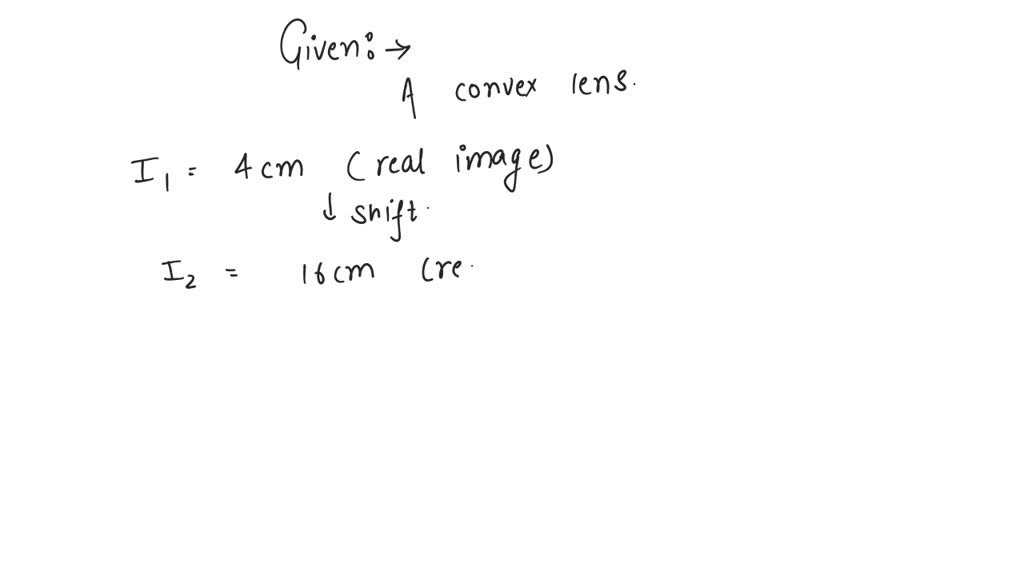 Given: →
A convex lens.
I₁ = 4cm (real image)
↓ shift.
I₂ = 16cm (re.